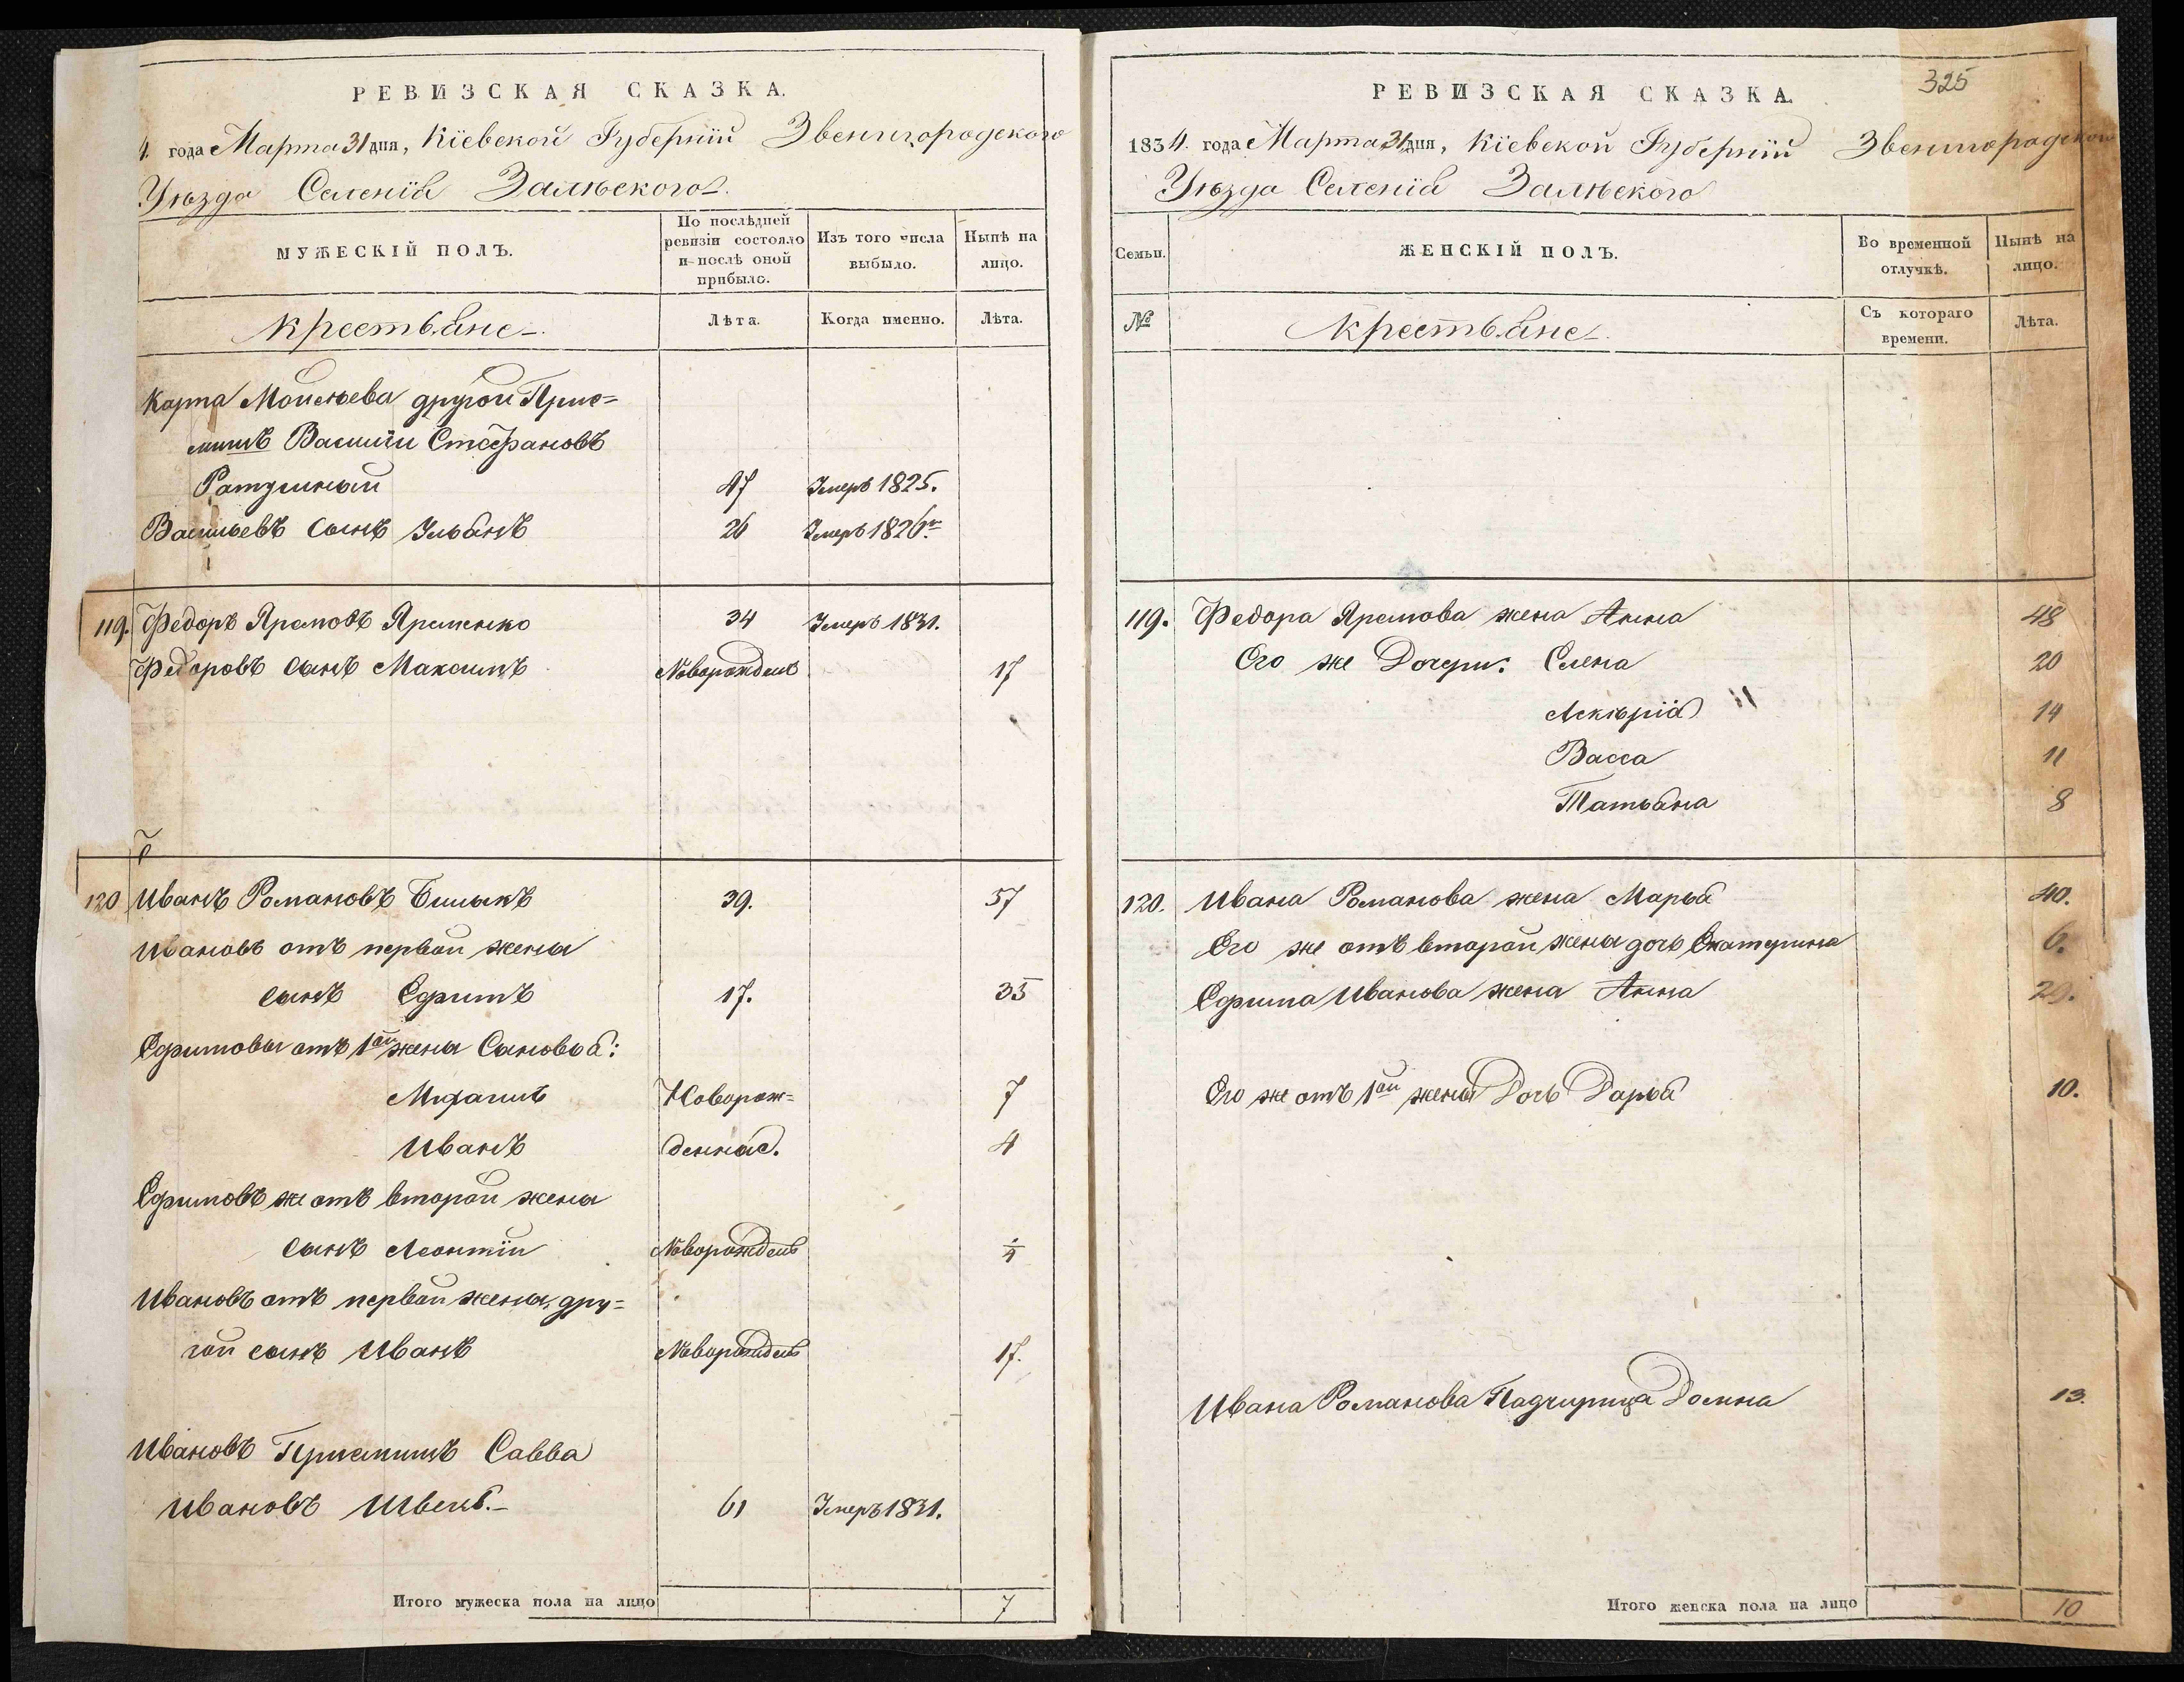 РЕВИЗСКАЯ СКАЗКА.
4. года Марта 31 дня, Кіевской Губерніи Звенигородского
Уѣзда Селенія Залѣского
МУЖЕСКІЙ ПОЛЪ.
По послѣдней ревизіи состояло и послѣ оной прибыло.
Изъ того числа выбыло.
Нынѣ на лицо.
Крестьяне
Лѣта.
Когда именно.
Лѣта.
Карпа Моисѣева другой Пріе=
мишъ Василій Стефановъ
47 Умеръ 1825.
Васильевъ сынъ Ульянъ 26 Умеръ 1826го
119. Федоръ Яремовъ Яременко 34 Умеръ 1831.
Федоровъ сынъ Максимъ Новорожденъ 17
120 Иванъ Романовъ Билыкъ 39. 57
Ивановъ отъ первой жены
сынъ Ефимъ 17. 35
Ефимовы отъ 1ой жены Сыновья:
Михаилъ Новорож= 7
Иванъ денные. 4
Ефимовъ же отъ второй жены
сынъ Леонтій Новорожденъ
Ивановъ отъ первой жены дру=
гой сынъ Иванъ Новорожденъ 17.
Ивановъ Пріемишъ Савва
Ивановъ Швець. 61 Умеръ 1831.
Итого мужеска пола на лицо 7
325
РЕВИЗСКАЯ СКАЗКА.
1834. года Марта 31 дня, Кіевской Губерніи Звенигородского
Уѣзда Селенія Залѣского
Семьи.
ЖЕНСКІЙ ПОЛЪ.
Во временной отлучкѣ.
Нынѣ на лицо.
№
Крестьяне
Съ котораго времени.
Лѣта.
119. Федора Яремова жена Анна 48
Его же Дочери: Елена 20
14
Васса 11
Татьяна 8
120. Ивана Романова жена Марья 40.
Его же отъ второй жены дочь Екатерина 6.
Ефима Иванова жена Анна 29.
Его же отъ 1ой жены Дочь Дарья 10.
Ивана Романова Падчирица Домна 13.
Итого женска пола на лицо 10